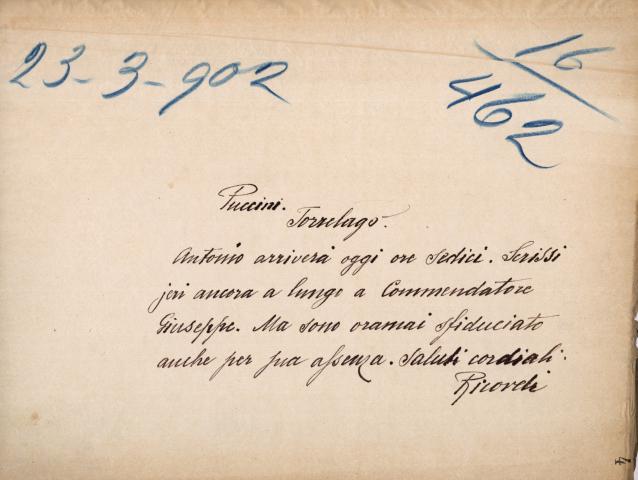 23-3-902
16/462
Puccini.
Torrelago.
Antonio arriverà oggi ore sedici. Scrissi
jeri ancora a lungo a Commendatore
Giuseppe. Ma sono oramai sfiduciato
anche per sua assenza. Saluti cordiali.
Ricordi